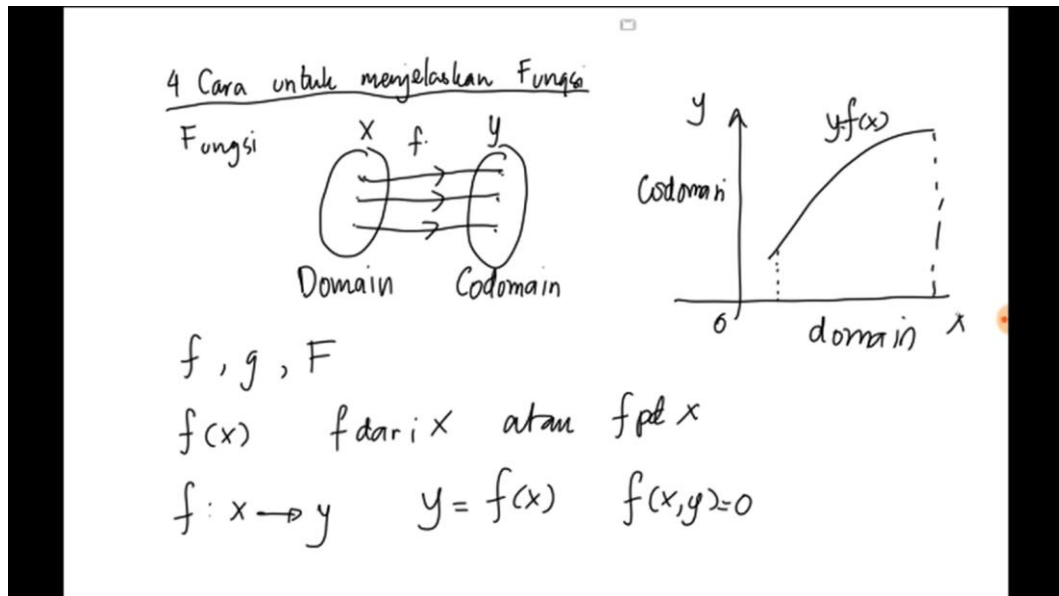 4 Cara untuk menjelaskan Fungsi
Fungsi
x f. y
Domain Codomain
y
y=f(x)
Codomain
0 domain x
f, g, F
f(x) f dari x atau f pd x
f : x → y y = f(x) f(x,y)=0